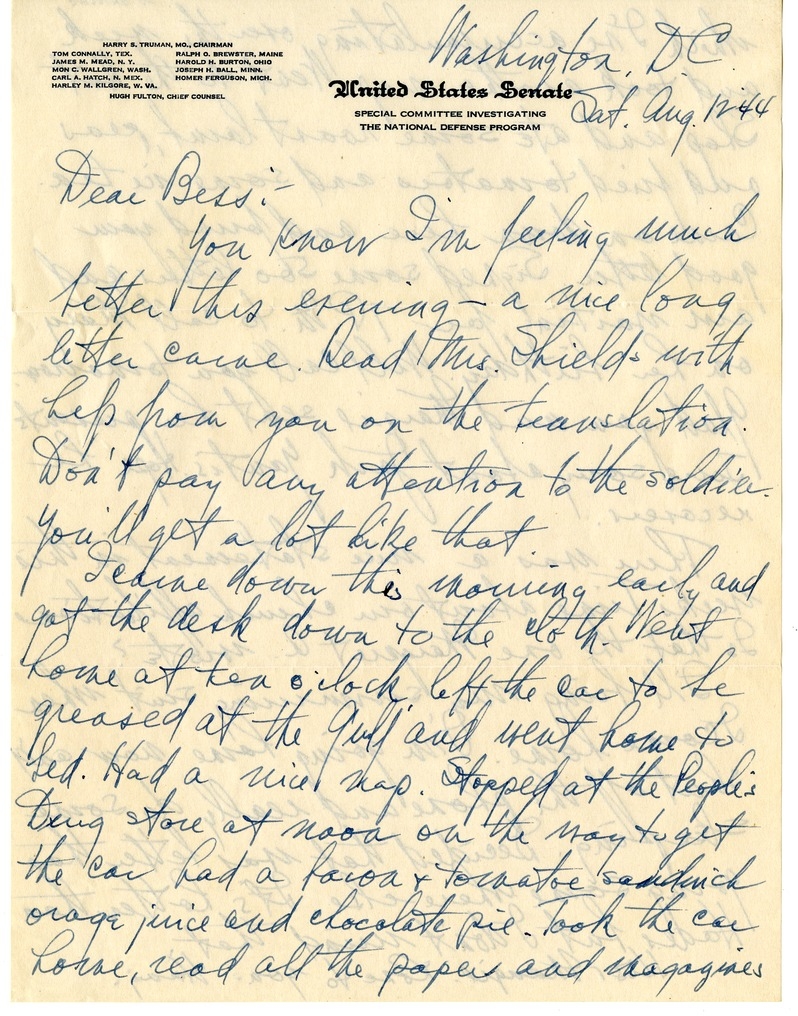 HARRY S. TRUMAN, MO., CHAIRMAN
TOM CONNALLY, TEX. RALPH O. BREWSTER, MAINE
JAMES M. MEAD, N. Y. HAROLD H. BURTON, OHIO
MON C. WALLGREN, WASH. JOSEPH H. BALL, MINN.
CARL A. HATCH, N. MEX. HOMER FERGUSON, MICH.
HARLEY M. KILGORE, W. VA.
HUGH FULTON, CHIEF COUNSEL
Washington, DC
United States Senate
Sat. Aug. 12 '44
SPECIAL COMMITTEE INVESTIGATING
THE NATIONAL DEFENSE PROGRAM
Dear Bess:-
You know I'm feeling much
better this evening - a nice long
letter came. Read Mrs. Shields with
help from you on the translation.
Don't pay any attention to the soldier.
You'll get a lot like that
I came down this morning early and
got the desk down to the cloth. Went
home at ten o'clock left the car to be
greased at the Gulf and went home to
bed. Had a nice nap. Stopped at the People's
Drug store at noon on the way to get
the car had a bacon & tomatoe sandwich
orage juice and chocolate pie. Took the car
home, read all the papers and magazines